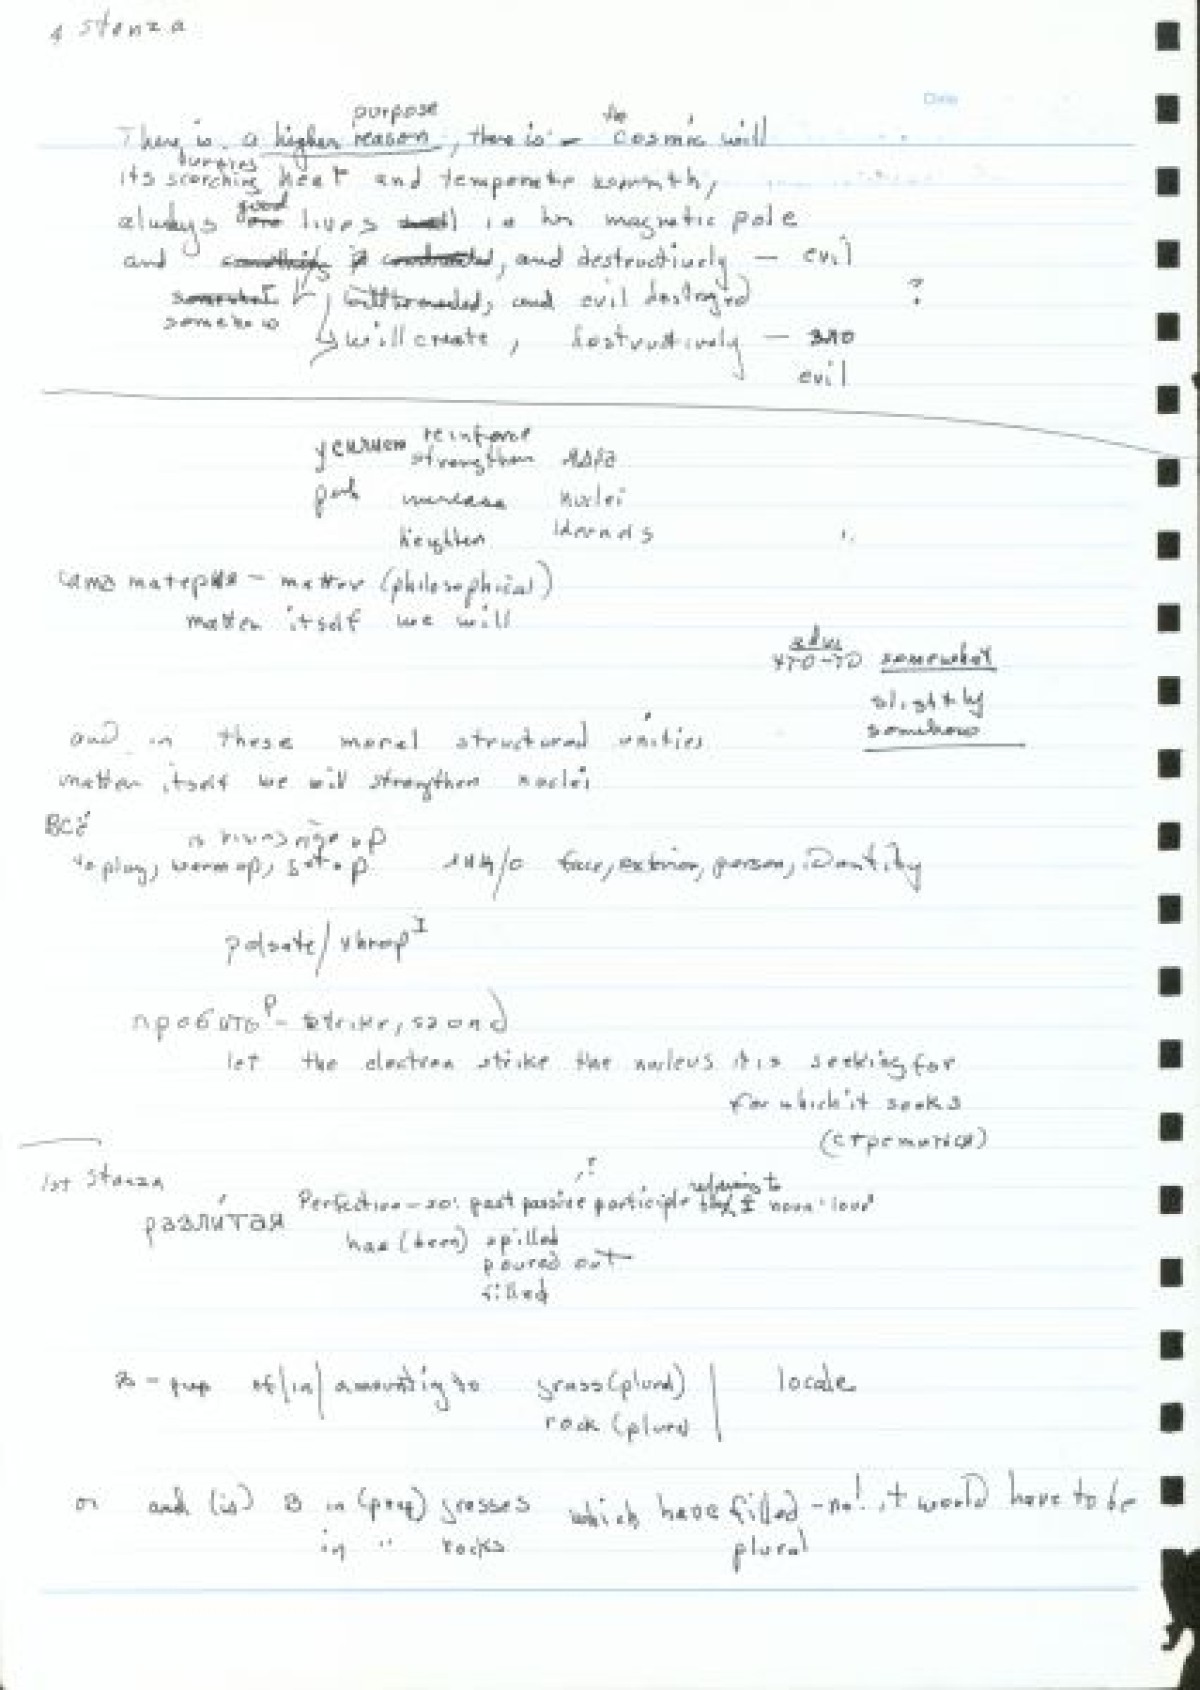 4 stenza
Date
purpose the
There is a higher reason, there is - cosmic will
burning
its scorching heat and temperate warmth,
good
always lives in her magnetic pole
and something is constructed, and destructively - evil
somewhat and evil destroyed ?
somehow
will create, destructively - зло
evil
усилием reinforce
strengthen ядра
increase nuclei
heighten kernels
сама материя - matter (philosophical)
matter itself we will
somewhat
slightly
somehow
and in these moral structured unities
matter itself we will strengthen nuclei
всё
to play, warm up, set up лицо face, exterior, person, identity
pulsate/
пробитьᴾ - strike, sound
let the electron strike the nucleus it is seeking for
for which it seeks
(стремится)
1st Stanza
?
referring to
разли́тая Perfective - so: past passive participle noun 'love'
has (been) spilled
poured out
filled
в - prep of/in/amounting to grass (plural) | locale
rock (plural)
or and (is) в in (prep) grasses which have filled - no! it would have to be
in " rocks plural